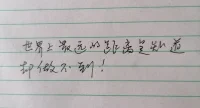 世界上最远的距离是知道
却做不到！